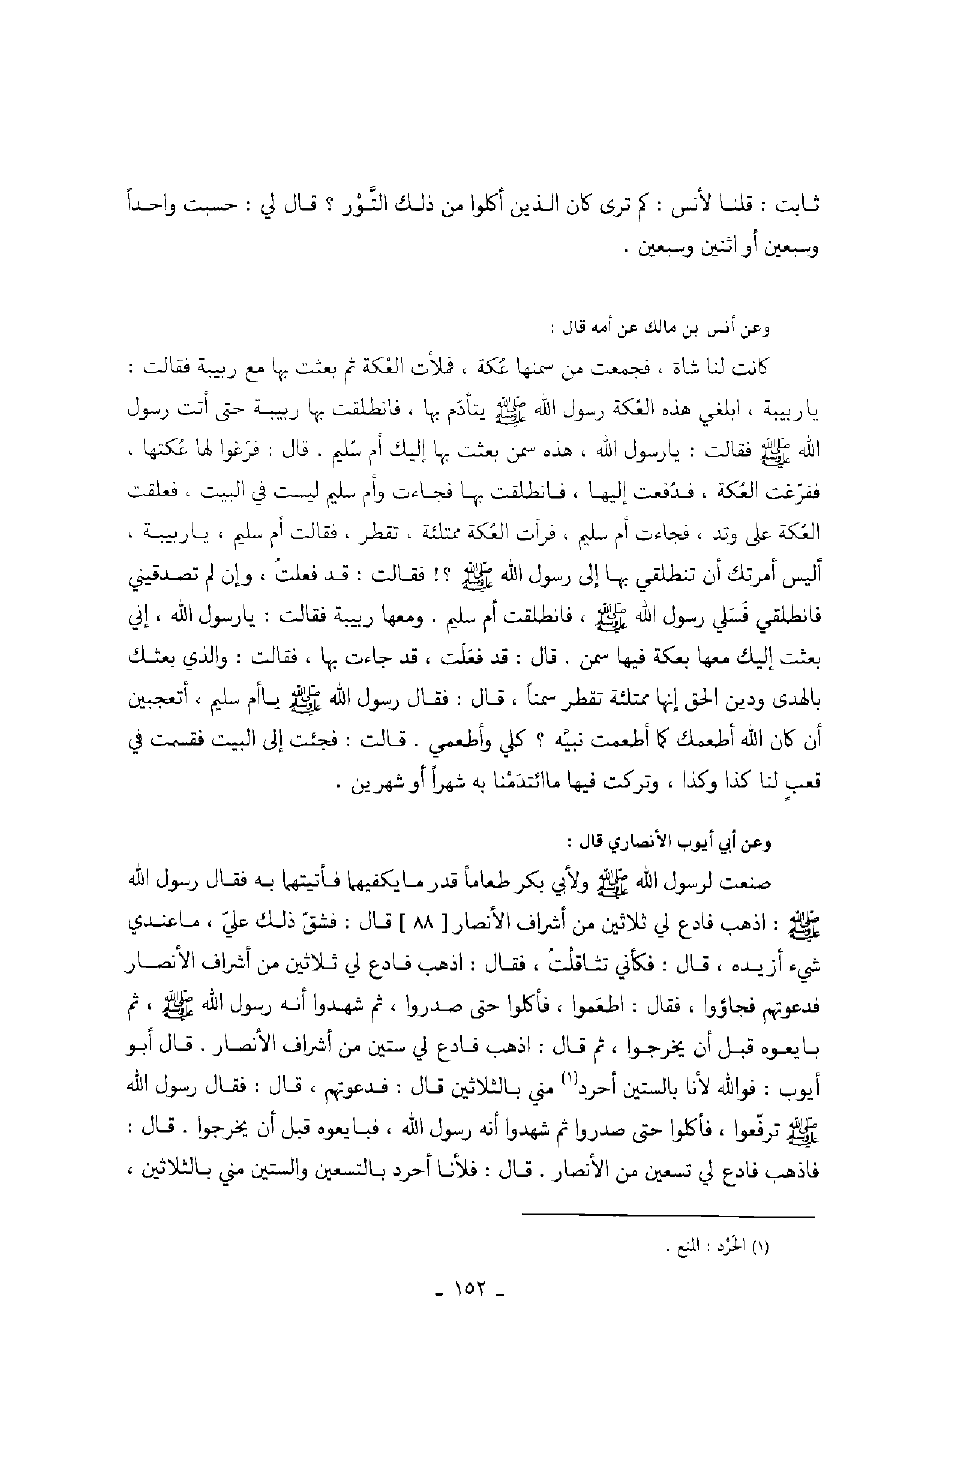 ثابت : قلنا لأنس : كم ترى كان الذين أكلوا من ذلك التَّوْر ؟ قال لي : حسبت واحداً
وسبعين أو اثنين وسبعين .
وعن أنس بن مالك عن أمه قال :
كانت لنا شاة ، فجمعت من سمنها عُكة ، فملأت العُكة ثم بعثت بها مع ربيبة فقالت :
ياربيبة ، ابلغي هذه العُكة رسول الله ﷺ يتأدّم بها ، فانطلقت بها ربيبة حتى أتت رسول
الله ﷺ فقالت : يارسول الله ، هذه سمن بعثت بها إليك أم سُليم . قال : فرّغوا لها عُكتها ،
ففرّغت العُكة ، فدُفعت إليها ، فانطلقت بها فجاءت وأم سليم ليست في البيت ، فعلقت
العُكة على وتد ، فجاءت أم سليم ، فرأت العُكة ممتلئة ، تقطر ، فقالت أم سليم ، ياربيبة ،
أليس أمرتك أن تنطلقي بها إلى رسول الله ﷺ ؟! فقالت : قد فعلتُ ، وإن لم تصدقيني
فانطلقي فَسَلي رسول الله ﷺ ، فانطلقت أم سليم . ومعها ربيبة فقالت : يارسول الله ، إني
بعثت إليك معها بعكة فيها سمن . قال : قد فعَلَت ، قد جاءت بها ، فقالت : والذي بعثك
بالهدى ودين الحق إنها ممتلئة تقطر سمناً ، قال : فقال رسول الله ﷺ ياأم سليم ، أتعجبين
أن كان الله أطعمك كما أطعمت نبيَّه ؟ كلي وأطعمي . قالت : فجئت إلى البيت فقسمت في
قعبٍ لنا كذا وكذا ، وتركت فيها ماائتدَمْنا به شهراً أو شهرين .
وعن أبي أيوب الأنصاري قال :
صنعت لرسول الله ﷺ ولأبي بكر طعاماً قدر مايكفيهما فأتيتهما به فقال رسول الله
ﷺ : اذهب فادع لي ثلاثين من أشراف الأنصار [ ٨٨ ] قال : فشقّ ذلك عليّ ، ماعندي
شيء أزيده ، قال : فكأني تثاقلتُ ، فقال : اذهب فادع لي ثلاثين من أشراف الأنصار
فدعوتهم فجاؤوا ، فقال : اطعَموا ، فأكلوا حتى صدروا ، ثم شهدوا أنه رسول الله ﷺ ، ثم
بايعوه قبل أن يخرجوا ، ثم قال : اذهب فادع لي ستين من أشراف الأنصار . قال أبو
أيوب : فوالله لأنا بالستين أحرد(١) مني بالثلاثين قال : فدعوتهم ، قال : فقال رسول الله
ﷺ ترفّعوا ، فأكلوا حتى صدروا ثم شهدوا أنه رسول الله ، فبايعوه قبل أن يخرجوا . قال :
فاذهب فادع لي تسعين من الأنصار . قال : فلأنا أحرد بالتسعين والستين مني بالثلاثين ،
(١) الحَرْد : المنع .
- ١٥٢ -